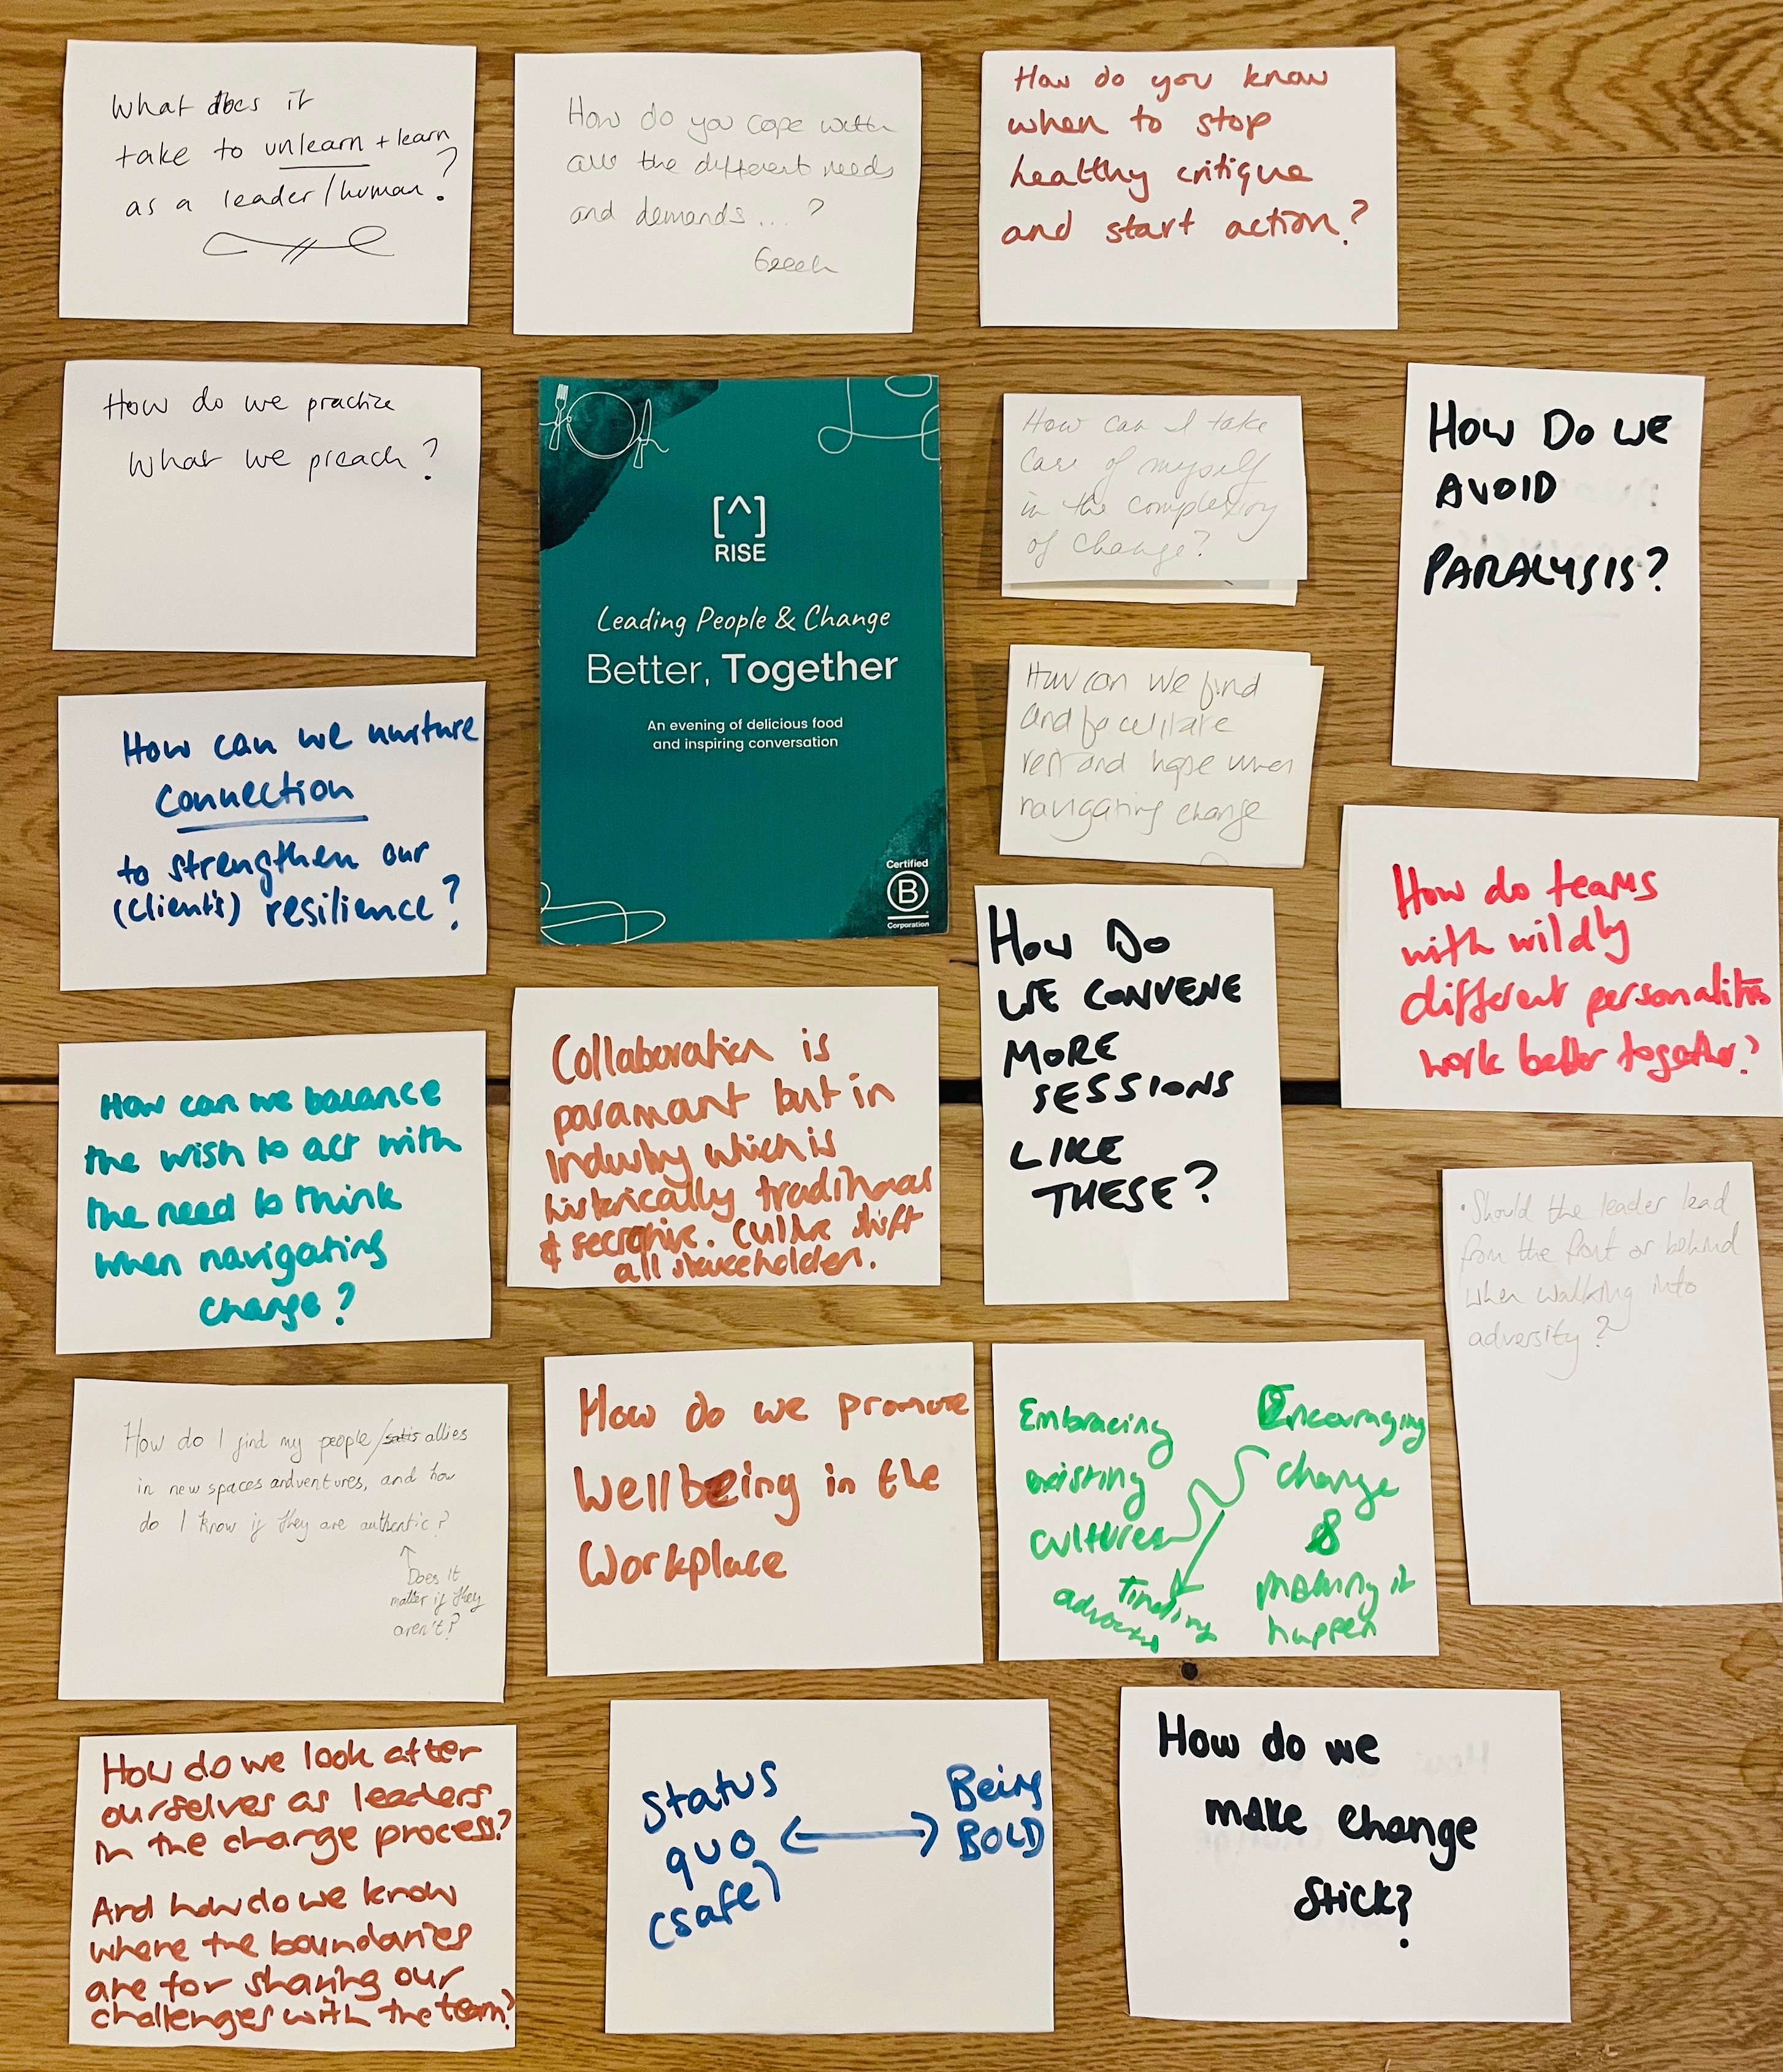 What does it
take to unlearn + learn
as a leader/human?
How do you cope with
all the different needs
and demands...?
How do you know
when to stop
healthy critique
and start action?
How do we practize
what we preach?
[^]
RISE
Leading People & Change
Better, Together
An evening of delicious food
and inspiring conversation
Certified
B
Corporation
How can I take
care of myself
in the complexity
of change?
HOW DO WE
AVOID
PARALYSIS?
How can we find
and facilitate
rest and hope when
navigating change
How can we nurture
connection
to strengthen our
(client's) resilience?
How do teams
with wildly
different personalities
work better together?
HOW DO
WE CONVENE
MORE
SESSIONS
LIKE
THESE?
How can we balance
the wish to act with
the need to think
when navigating
change?
Collaboration is
paramant but in
Industry which is
historically traditional
& secretive. Culture shift
all stakeholders.
• Should the leader lead
from the front or behind
when walking into
adversity?
How do I find my people/satis allies
in new spaces and ventures, and how
do I know if they are authentic?
↑
Does it
matter if they
aren't?
How do we promote
Wellbeing in the
Workplace
Embracing
existing
cultures
Finding
advocates
Encouraging
change
&
making it
happen
How do we look after
ourselves as leaders
in the change process?
And how do we know
where the boundaries
are for sharing our
challenges with the team?
Status
quo
(safe)
Being
BOLD
How do we
make change
stick?